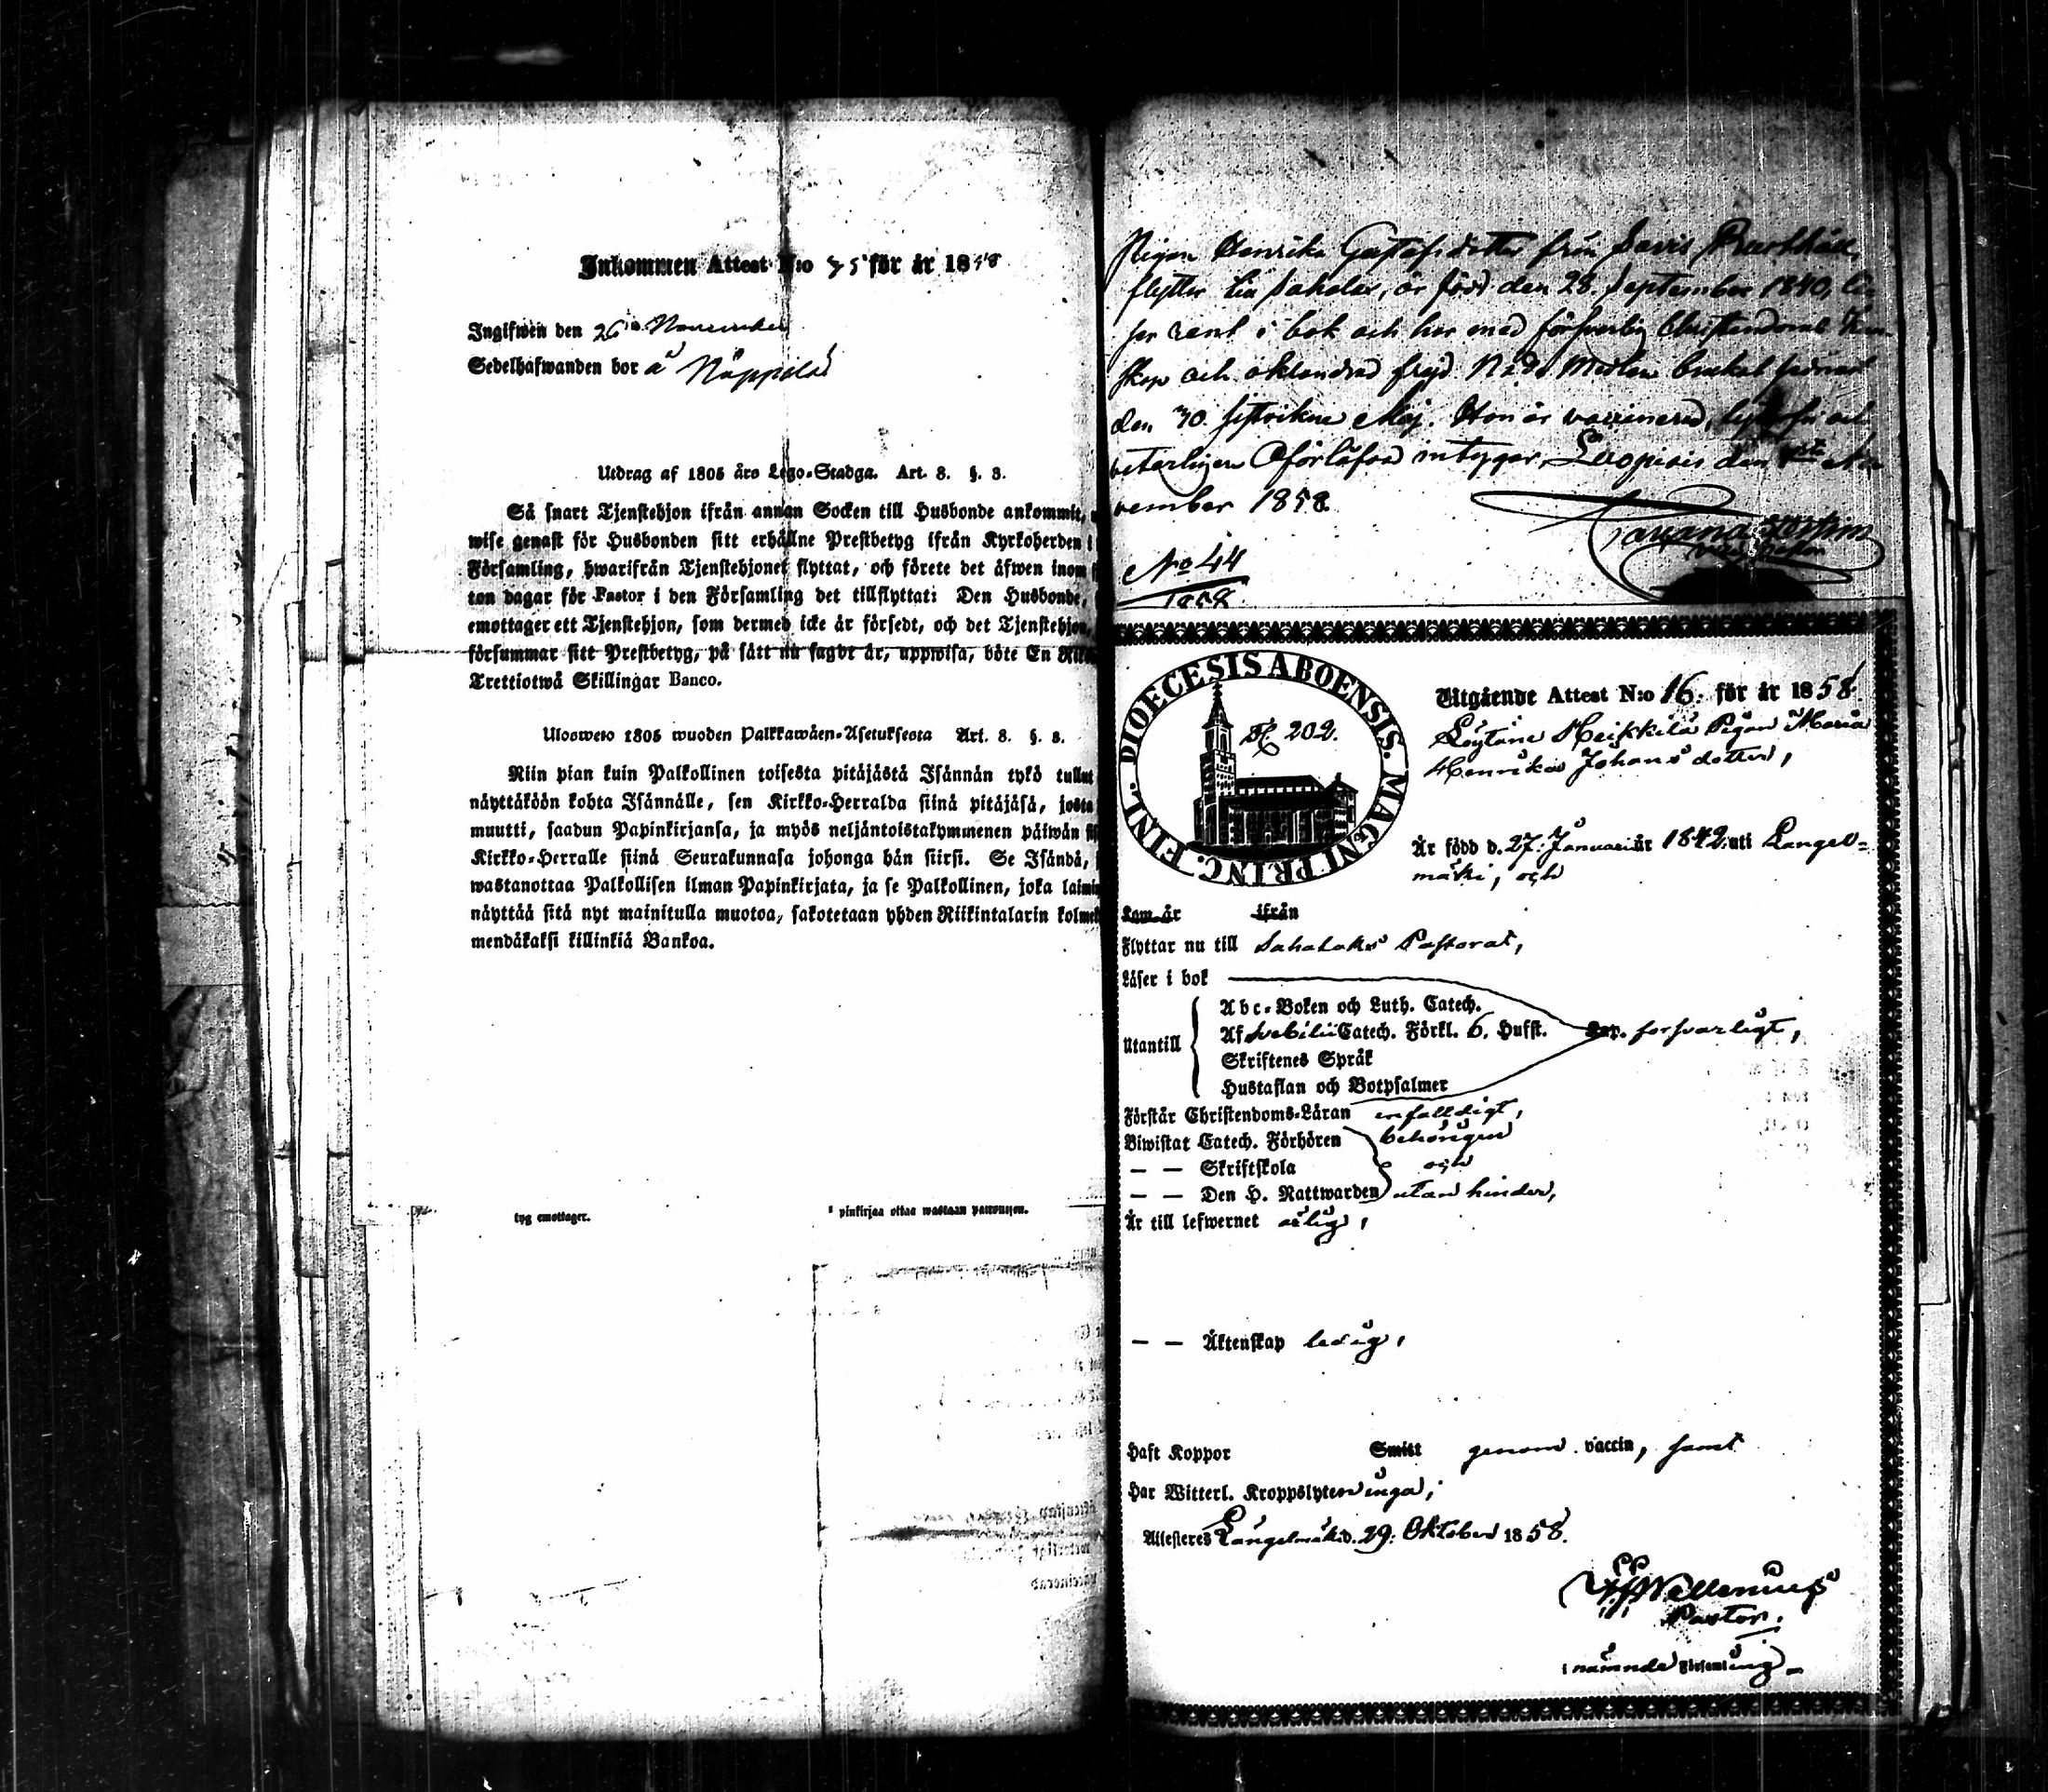 Inkommen Attest N:o 75 för år 1858
Ingifwen den 26 November
Sedelhafwanden bor å Näppilä
Utdrag af 1805 års Lego-Stadga. Art. 3. §. 3.
Så snart Tjenstehjon ifrån annan Socken till Husbonde ankommit,
wise genast för Husbonden sitt erhållne Prestbetyg ifrån Kyrkoherden i
Församling, hwarifrån Tjenstehjonet flyttat, och förete det äfwen inom
ton dagar för Pastor i den Församling det tillflyttat: Den Husbonde,
emottager ett Tjenstehjon, som dermed icke är försedt, och det Tjenstehjon,
försummar sitt Prestbetyg, på sätt nu sagdt är, uppwisa, böte En
Trettiotwå Skillingar Banco.
Ulosweto 1805 wuoden Palkkawäen-Asetuksesta Art. 3. §. 3.
Niin pian kuin Palkollinen toisesta pitäjästä Isännän tykö tullut
näyttäköön kohta Isännälle, sen Kirkko-Herralda siinä pitäjäsä, josta
muutti, saadun Papinkirjansa, ja myös neljäntoistakymmenen päiwän
Kirkko-Herralle siinä Seurakunnasa johonga hän siirsi. Se Isändä,
wastanottaa Palkollisen ilman Papinkirjata, ja se Palkollinen, joka
näyttää sitä nyt mainitulla muotoa, sakotetaan yhden Riikintalarin
mendäkaksi killinkiä Bankoa.
tyg emottager.
pinkirjaa ottaa wastaan
Pigan Henrika Gustafsdotter från
flyttar till Sahalax, är född den 28 September 1840,
ser rent i bok och har med försvarlig Christendoms
skap och oklandrad frejd Nåde Medlen brukat
den 30 sistvikne Maj. Hon är vaccinerad, lytesfri och
veterligen Oförlofvad intygar, Luopiois den
vember 1858.
No 44
1858
DIOECESIS ABOENSIS. MAGNI PRINC. FINL.
202.
Utgående Attest N:o 16. för år 1858
Löytänä Heikkilä Pigan Maria
Henrika Johansdotter,
Är född d. 27. Januarii år 1842 uti Längel-
mäki, och
kom år ifrån
Flyttar nu till Sahalaks Pastorat,
Läser i bok
Utantill
Abc-Boken och Luth. Catech.
Af Svebilii Catech. Förkl. 6. Hufst. försvarligt,
Skriftenes Språk
Hustaflan och Botpsalmer
Förstår Christendoms-Läran enfaldigt,
Biwistat Catech. Förhören behörigen
— — Skriftskola och
— — Den H. Nattwarden utan hinder,
Är till lefwernet ärlig,
— — Äktenskap ledig,
Haft Koppor Smitt genom vaccin, samt
Har Witterl. Kroppslyten inga,
Attesteras Längelmäki d. 29. Oktober 1858.
Wellenius
Pastor.
i nämnde Församling